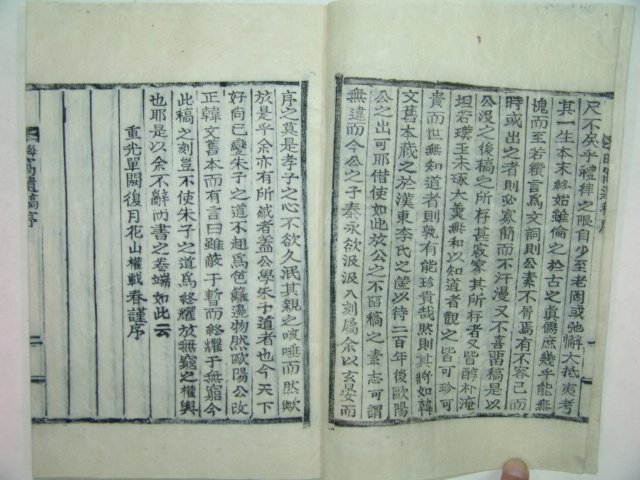 尺不矣乎禮律之限自少至老罔或弛懈大抵夷考
其一生本末終始雖倫之於古之眞儒庶幾乎能無
愧而至若繡言爲文詞則公素不屑焉有不容已而
時或出之者則必寡簡而不汗漫又不喜留稿是以
公沒之後稿之所存甚寂寥其所存者又皆醇朴淹
坦若璞玉未琢大羹無和以知道者觀之皆可珍可
貴而世無知道者則孰有能珍貴哉然則其將如韓
文舊本藏之於漢東李氏之篋以待二百年後歐陽
公之出可耶借使如此放公之不留稿之素志可謂
無違而今公之子泰永欲汲汲入刻屬余以玄晏而
序之莫是孝子之心不欲久泯其親之咳唾而然歟
放是乎余亦有所感者蓋公學朱子道者也今天下
好尚已變朱子之道不翅爲笆籬邊物然歐陽公改
正韓文舊本而有言曰雖蔽于暫而終耀于無窮今
此稿之刻豈不使朱子之道爲終耀放無窮之權輿
也耶是以余不辭而書之卷端如此云
重光單閼復月花山權載春謹序
梅窩遺稿序